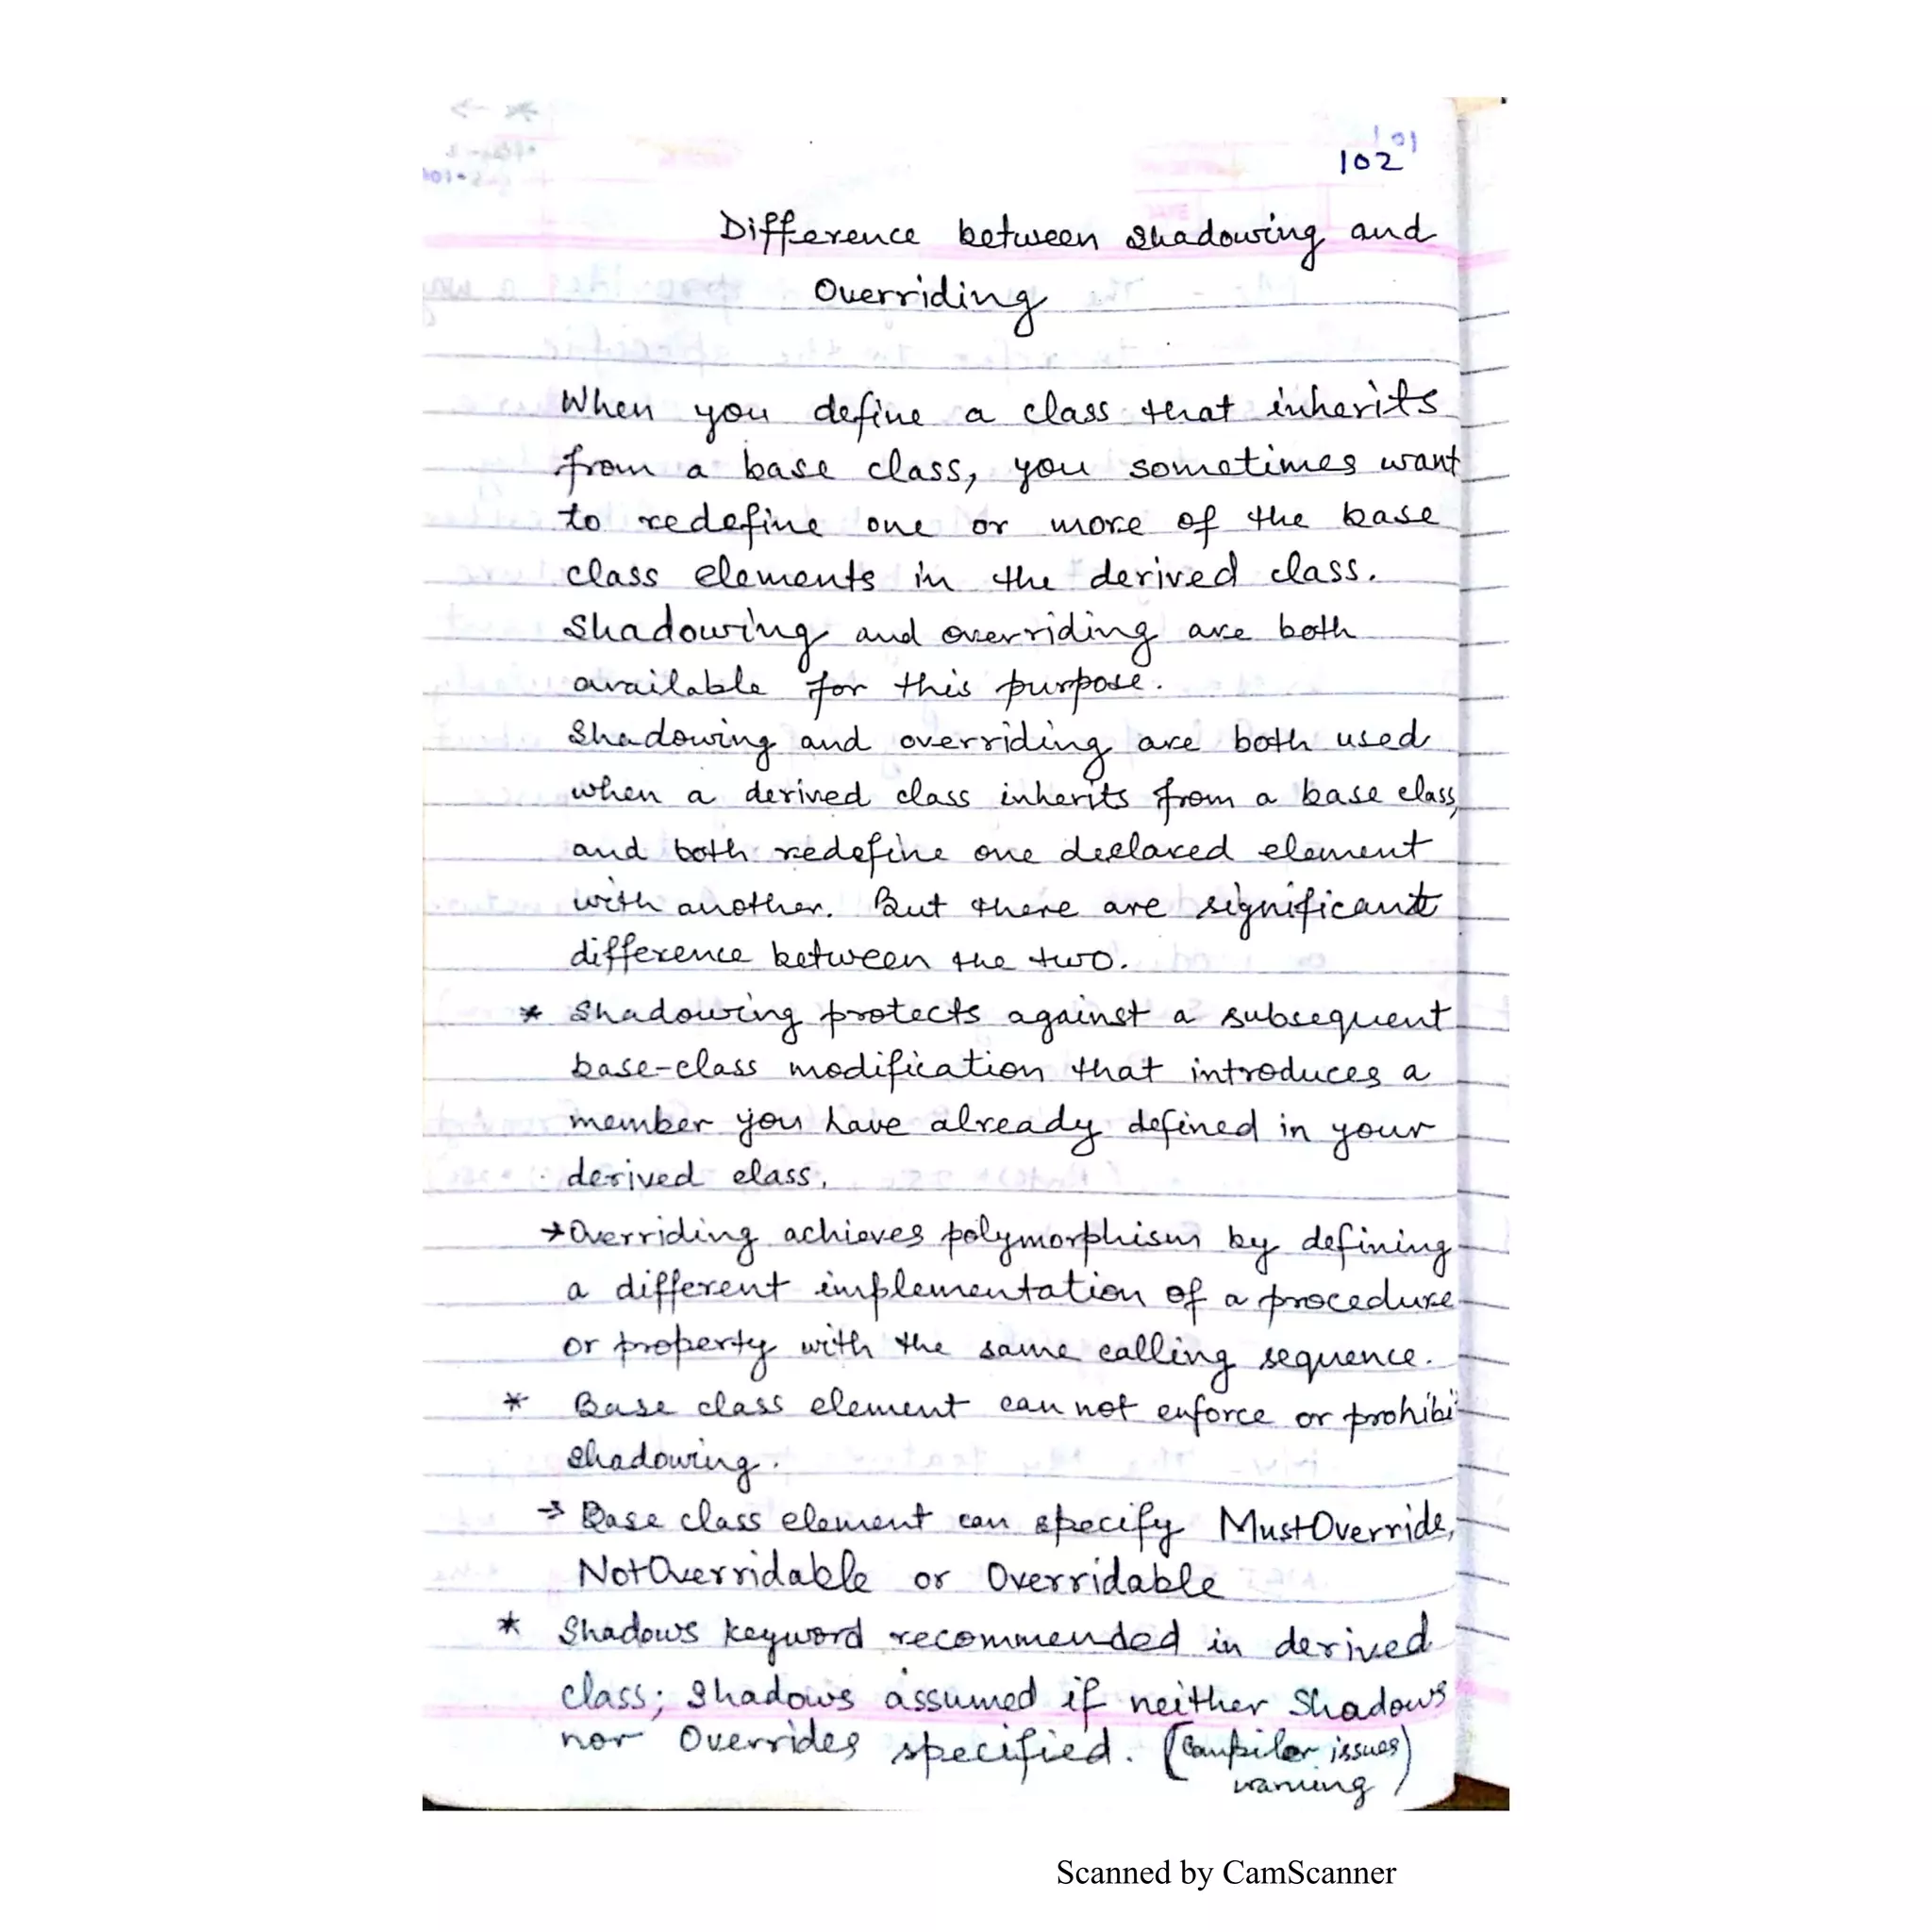 102
Difference between shadowing and
Overriding
When you define a class that inherits
from a base class, you sometimes want
to redefine one or more of the base
class elements in the derived class.
Shadowing and overriding are both
available for this purpose.
Shadowing and overriding are both used
when a derived class inherits from a base class,
and both redefine one declared element
with another. But there are significant
difference between the two.
* Shadowing protects against a subsequent
base-class modification that introduces a
member you have already defined in your
derived class.
→ Overriding achieves polymorphism by defining
a different implementation of a procedure
or property with the same calling sequence.
* Base class element can not enforce or prohibi
shadowing.
→ Base class element can specify MustOverride,
NotOverridable or Overridable
* Shadows keyword recommended in derived
class; Shadows assumed if neither Shadows
nor Overrides specified. (Compiler issues
warning)
Scanned by CamScanner